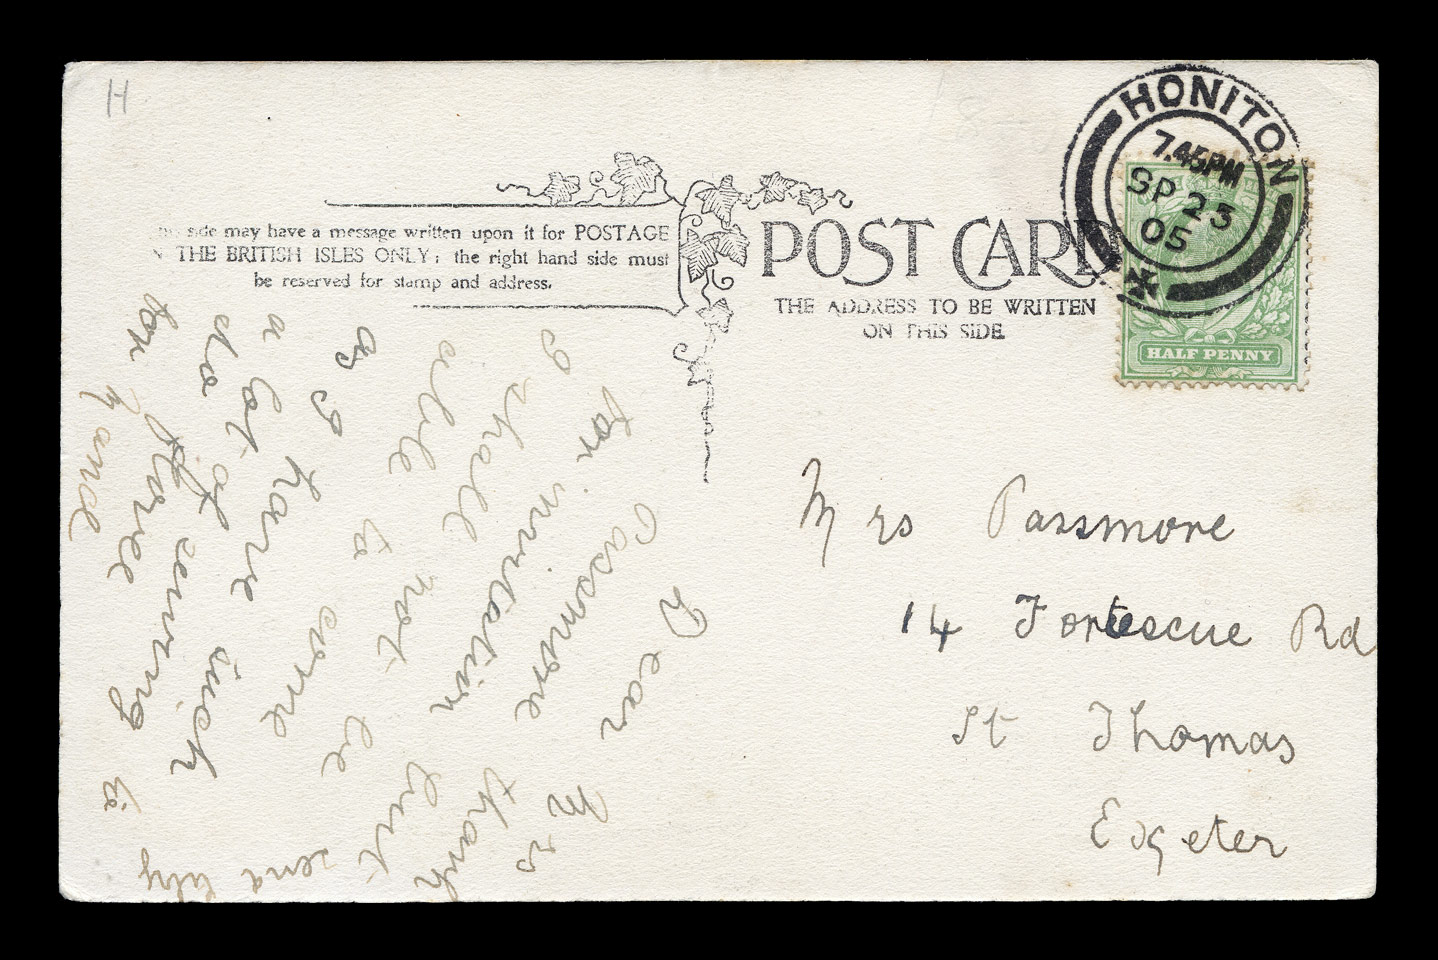 H
HONITON
7.45PM
SP 23
05
HALF PENNY
side may have a message written upon it for POSTAGE
THE BRITISH ISLES ONLY; the right hand side must
be reserved for stamp and address.
POST CARD
THE ADDRESS TO BE WRITTEN
ON THIS SIDE.
Mrs Passmore
14 Fortescue Rd
St Thomas
Exeter
Dear Mrs
Passmore thank
for invitation but
I shall not be
able to come
as I have such
a lot of sewing to
do for